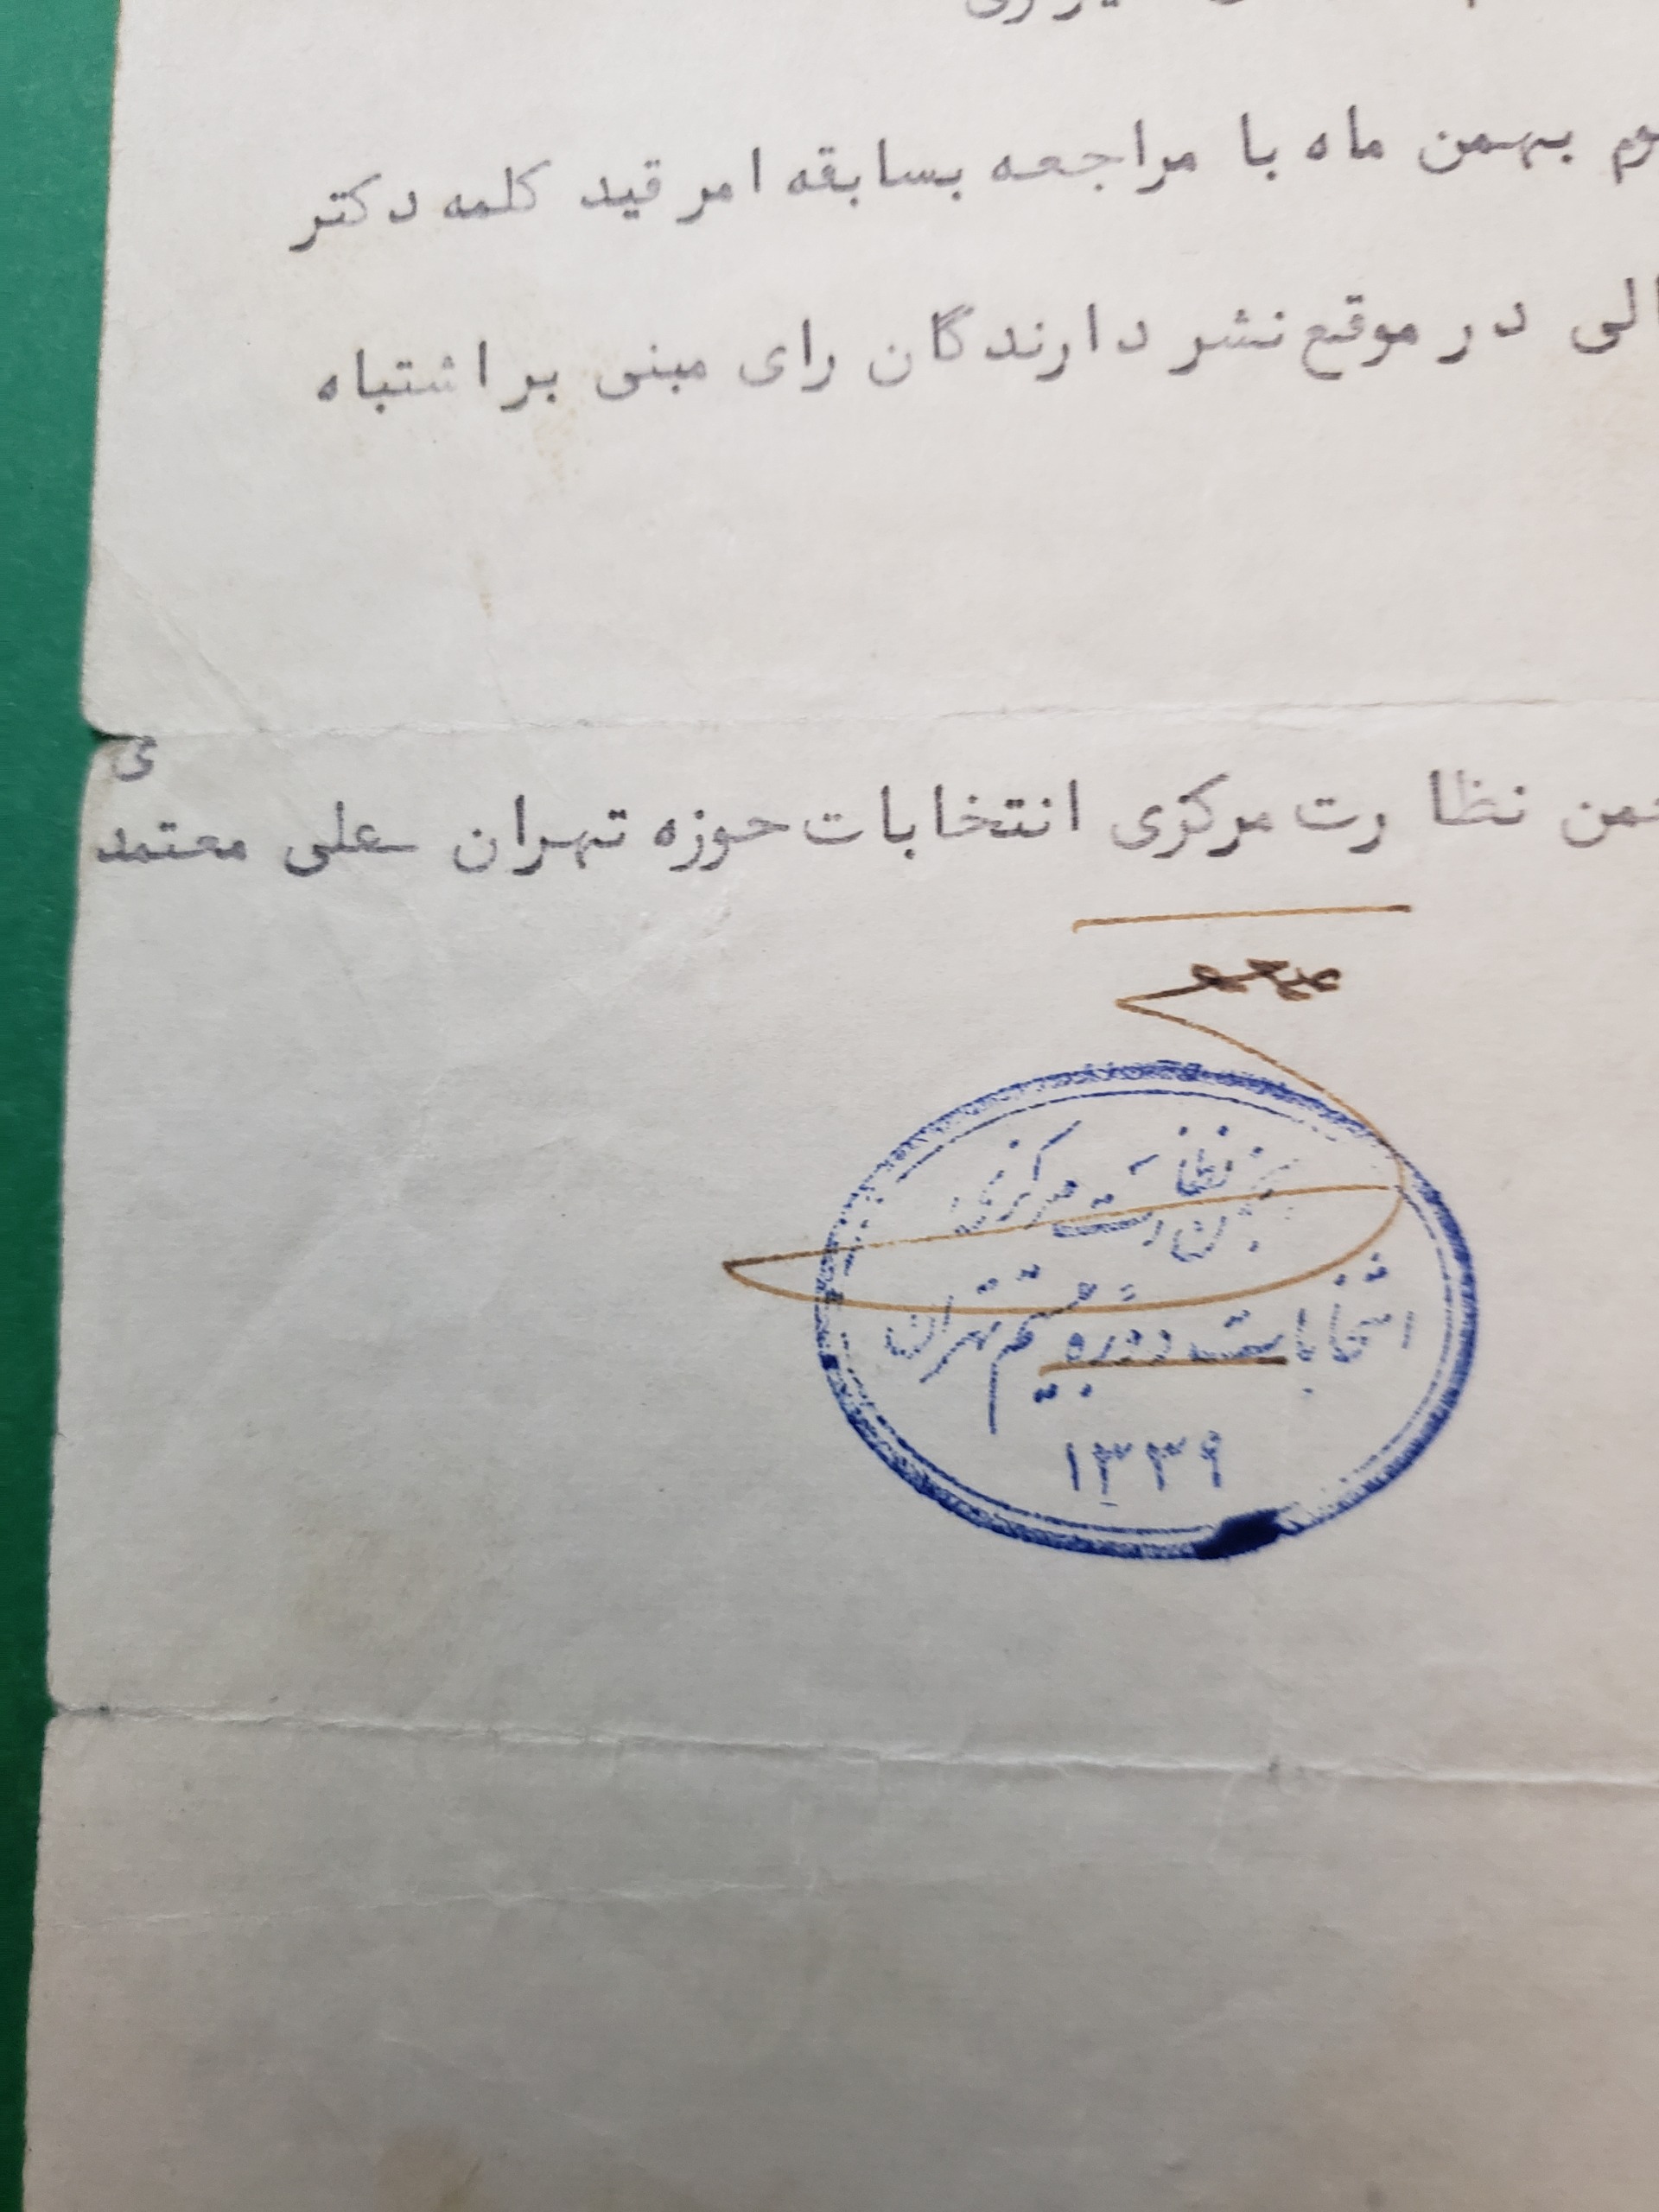 بهمن ماه با مراجعه بسابقه امر قید کلمه دکتر
در موقع نشر دارندگان رای مبنی بر اشتباه
نظارت مرکزی انتخابات حوزه تهران علی معتمدی
نظارت مرکزی
انتخابات دوره بیستم تهران
۱۳۳۹